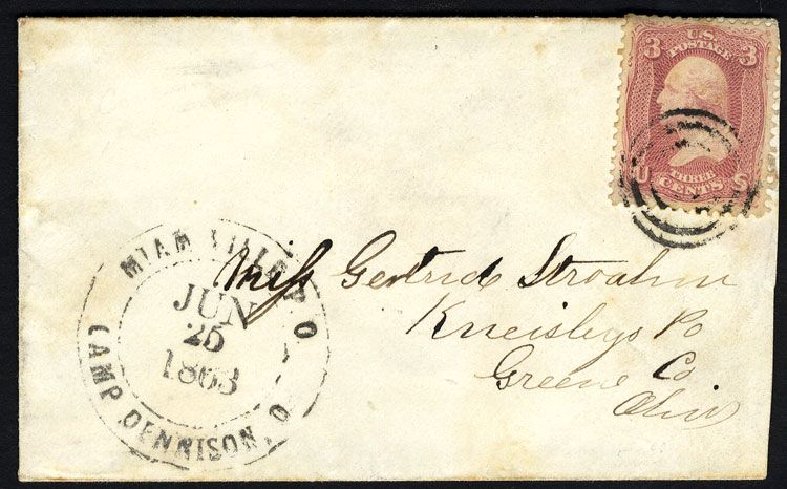 3 U.S. 3
POSTAGE
U S
THREE
CENTS
MIAMIVILLE O
JUN
25
1863
CAMP DENNISON, O
Miss Gertrude
Kneisleys Po
Greene Co
Ohio